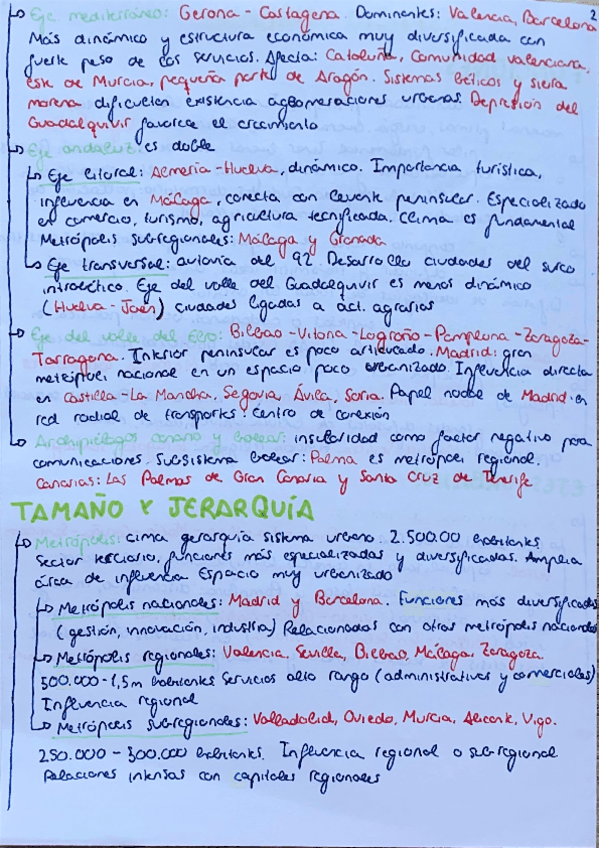 2
Eje mediterráneo: Gerona - Cartagena. Dominantes: Valencia, Barcelona
Más dinámico y estructura económica muy diversificada con
fuerte peso de los servicios. Afecta: Cataluña, Comunidad valenciana,
este de Murcia, pequeña parte de Aragón. Sistemas béticos y sierra
morena dificultan existencia aglomeraciones urbanas. Depresión del
Guadalquivir favorece el crecimiento
Eje andaluz: es doble
Eje litoral: Almería-Huelva, dinámico. Importancia turística,
influencia en Málaga, conecta con levante peninsular. Especializado
en comercio, turismo, agricultura tecnificada. Clima es fundamental
Metrópolis subregionales: Málaga y Granada
Eje transversal: autovía del 92. Desarrolla ciudades del surco
intrabético. Eje del valle del Guadalquivir es menos dinámico
(Huelva - Jaen) ciudades ligadas a act. agrarias
Eje del valle del Ebro: Bilbao - Vitoria - Logroño - Pamplona - Zaragoza-
Tarragona. Interior peninsular es poco articulado. Madrid: gran
metrópoli nacional en un espacio poco urbanizado. Influencia directa
en Castilla-La Mancha, Segovia, Ávila, Soria. Papel nodal de Madrid en
red radial de transportes: centro de conexión
Archipiélagos canario y balear: insularidad como factor negativo para
comunicaciones. Subsistema balear: Palma es metrópoli regional.
Canarias: Las Palmas de Gran Canaria y Santa Cruz de Tenerife
TAMAÑO Y JERARQUÍA
Metrópolis: cima gerarquía sistema urbano. 2.500.00 habitantes
Sector terciario, funciones más especializadas y diversificadas. Amplia
área de influencia Espacio muy urbanizado
Metrópolis nacionales: Madrid y Barcelona. Funciones más diversificadas
(gestión, innovación, industria) Relacionadas con otras metrópolis nacionales
Metrópolis regionales: Valencia, Sevilla, Bilbao, Málaga, Zaragoza.
500.000-1,5m habitantes Servicios alto rango (administrativos y comerciales)
Influencia regional
Metrópolis subregionales: Valladolid, Oviedo, Murcia, Alicante, Vigo.
250.000 - 500.000 habitantes. Influencia regional o subregional
Relaciones intensas con capitales regionales